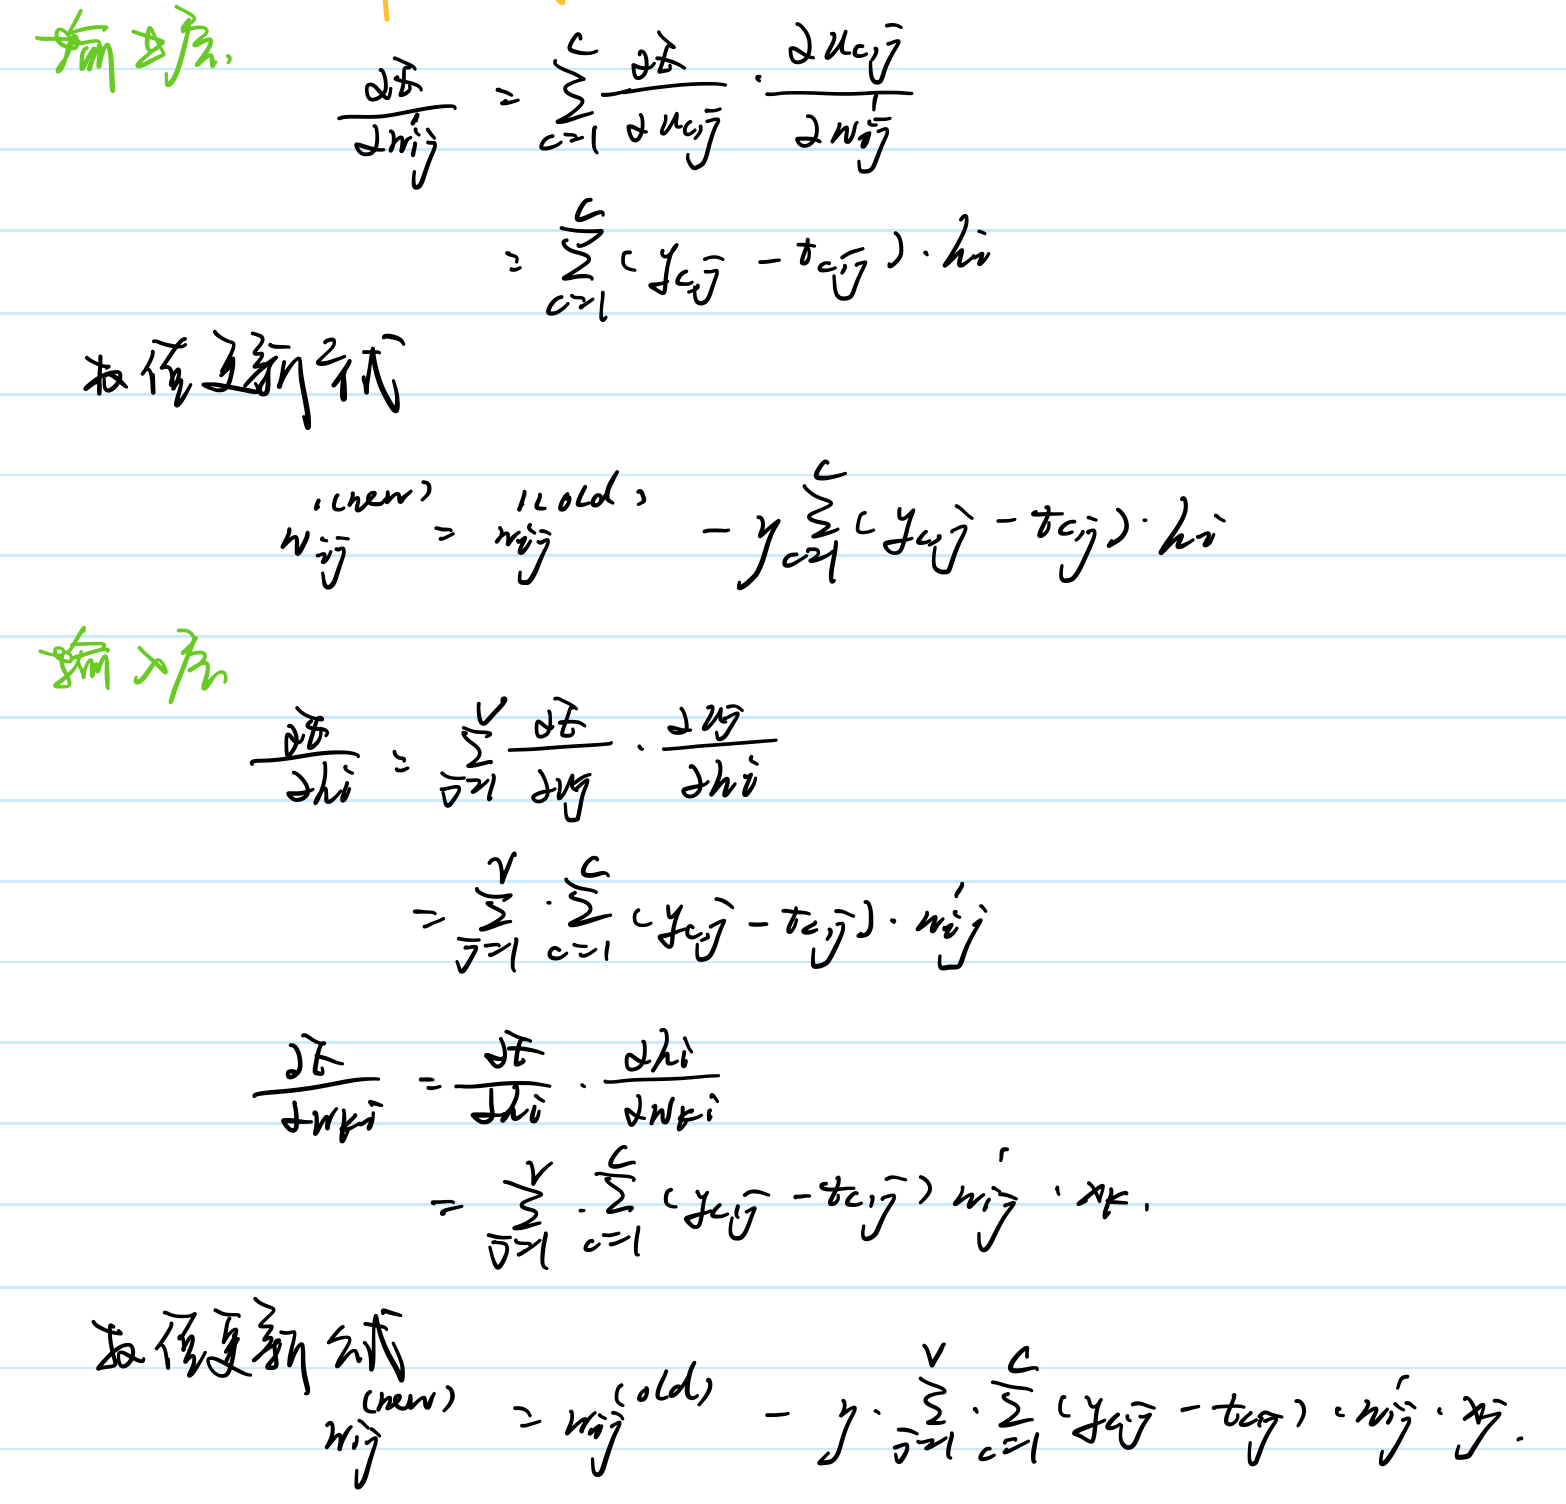 输出层.
∂E/∂w'ij = Σ_{c=1}^{C} ∂E/∂u_{c,j} · ∂u_{c,j}/∂w'ij
= Σ_{c=1}^{C} (y_{c,j} - t_{c,j}) · hi
权值更新公式
w'ij^(new) = w'ij^(old) - η Σ_{c=1}^{C} (y_{c,j} - t_{c,j}) · hi
输入层
∂E/∂hi = Σ_{j=1}^{V} ∂E/∂uj · ∂uj/∂hi
= Σ_{j=1}^{V} · Σ_{c=1}^{C} (y_{c,j} - t_{c,j}) · w'ij
∂E/∂wki = ∂E/∂hi · ∂hi/∂wki
= Σ_{j=1}^{V} · Σ_{c=1}^{C} (y_{c,j} - t_{c,j}) w'ij · xk.
权值更新公式
wij^(new) = wij^(old) - η · Σ_{j=1}^{V} · Σ_{c=1}^{C} (y_{c,j} - t_{c,j}) · w'ij · xj.